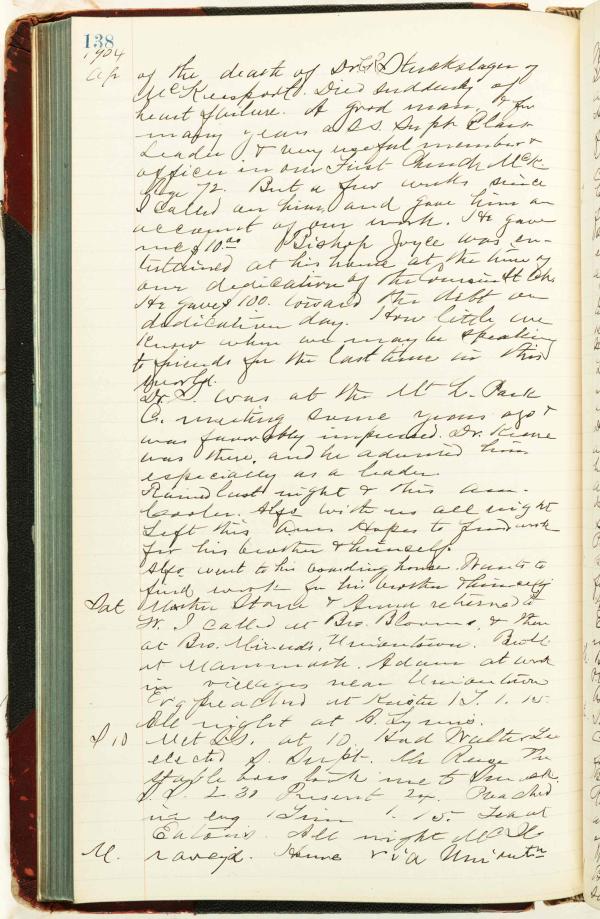 138
1904
Ap of the death of Dr. Stuckslager of
McKeesport. Died suddenly of
heart failure. A good man, & for
many years a S.S. Supt. Class
Leader & very useful member &
officer in our First Church McK.
Age 72. But a few weeks since
I called on him, and gave him an
account of our work. He gave
me $10.00 Bishop Joyce was en-
tertained at his home at the time of
our dedication of the Ch.
He gave $100. toward the debt on
dedication day. How little we
know when we may be speaking
to friends for the last time in this
world.
Dr. S. was at the Mt L. Park
C. meeting some years ago &
was favorably impressed. Dr. Keene
was there, and he admired him
especially as a leader.
Rained last night & this am.
Cooler. with us all night
Left this am. Hopes to find work
for his brother & himself.
went to his boarding house. Wants to
find work for his brother & himself
Sat Mother Stone & Anna returned to
W. I called at Bro. Blooms, & then
at Bro. Uniontown. Both
at Mammoth. Adam at work
in villages near Uniontown
Evg preached at 1 T. 1. 15.
All night at B.
S 10 Met S.S. at 10. Had Walter
elected S. Supt. Mr the
stable boss took me to
S.S. 2.30 Present 24. Preached
in evg 1 Tim 1. 15. Tea at
Eatons. All night
M. Home via Uniontn